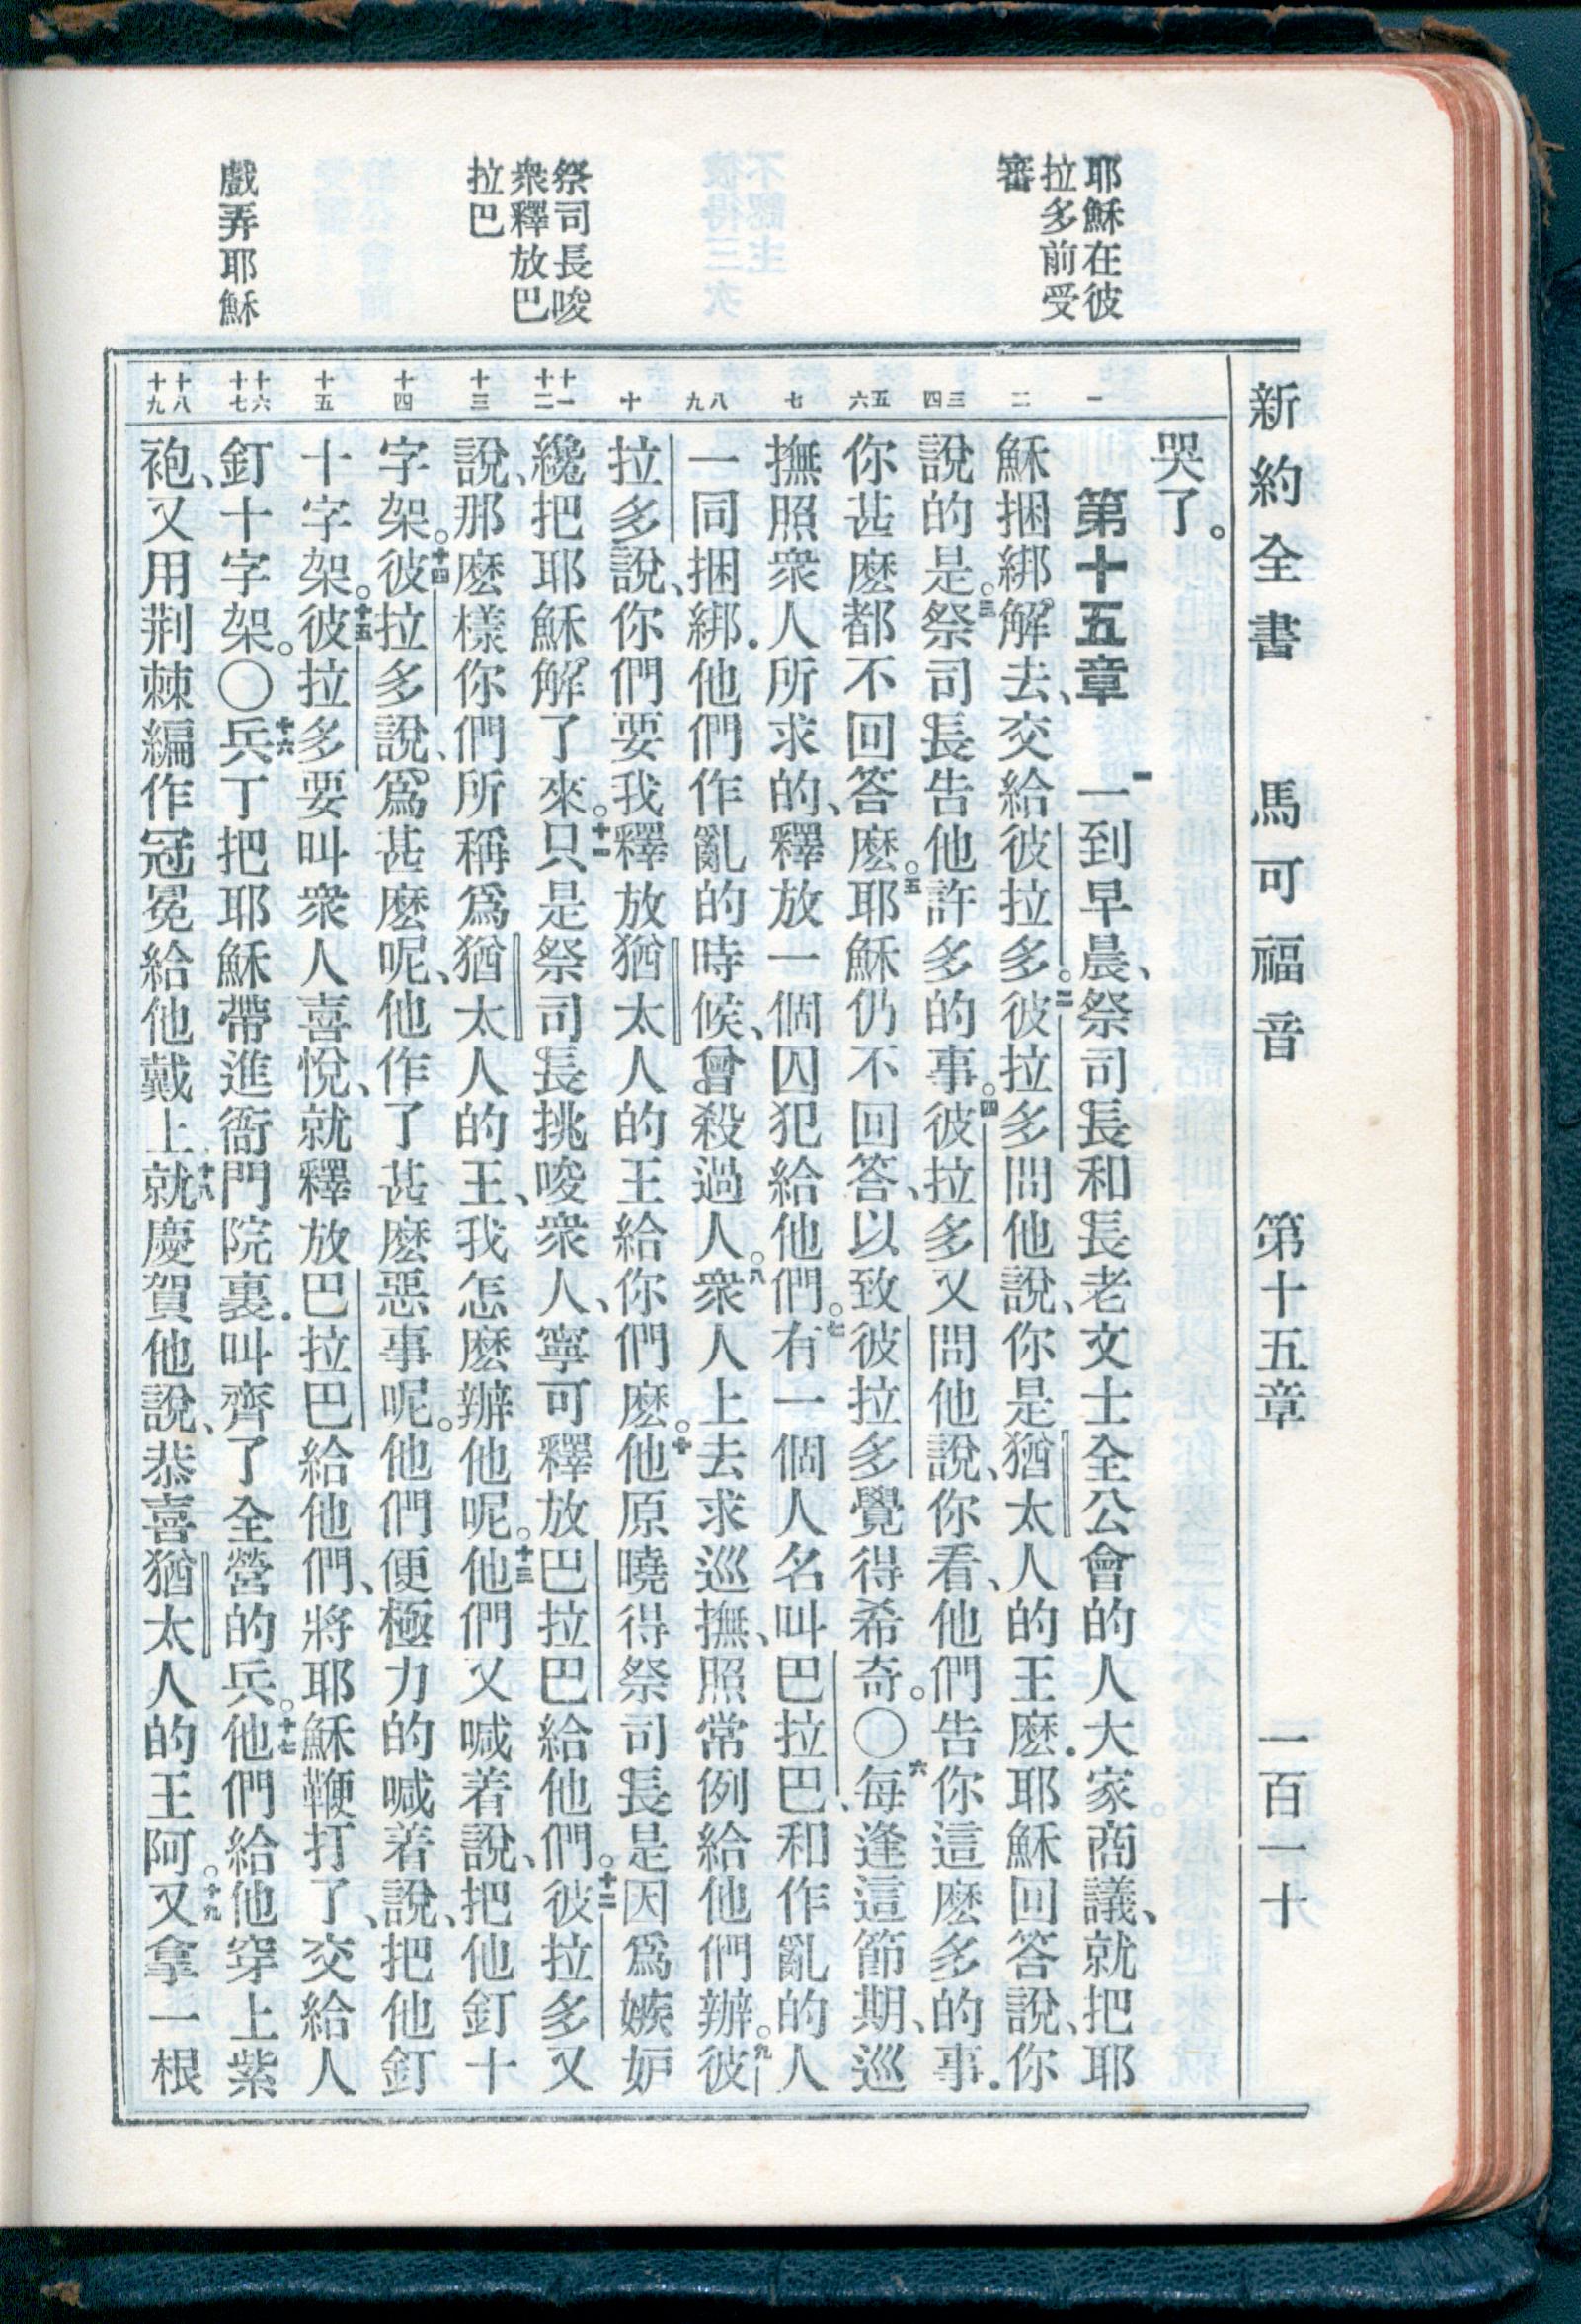 新約全書　馬可福音　第十五章　一百一十
耶穌在彼
拉多前受
審
祭司長唆
衆釋放巴
拉巴
戲弄耶穌
一
二
三
四
五
六
七
八
九
十
十一
十二
十三
十四
十五
十六
十七
十八
十九
哭了。
第十五章　一一到早晨、祭司長和長老文士全公會的人大家商議、就把耶
穌捆綁解去、交給彼拉多。二彼拉多問他說、你是猶太人的王麽．耶穌回答說、你
說的是。三祭司長告他許多的事。四彼拉多又問他說、你看、他們告你這麽多的事．
你甚麽都不回答麽。五耶穌仍不回答、以致彼拉多覺得希奇。〇六每逢這節期、巡
撫照衆人所求的、釋放一個囚犯給他們。七有一個人名叫巴拉巴、和作亂的人
一同捆綁．他們作亂的時候、曾殺過人。八衆人上去求巡撫、照常例給他們辦。九彼
拉多說、你們要我釋放猶太人的王給你們麽。十他原曉得祭司長是因爲嫉妒
纔把耶穌解了來。十一只是祭司長挑唆衆人、寧可釋放巴拉巴給他們。十二彼拉多又
說、那麽樣你們所稱爲猶太人的王、我怎麽辦他呢。十三他們又喊着說、把他釘十
字架。十四彼拉多說、爲甚麽呢、他作了甚麽惡事呢。他們便極力的喊着說、把他釘
十字架。十五彼拉多要叫衆人喜悅、就釋放巴拉巴給他們、將耶穌鞭打了、交給人
釘十字架。〇十六兵丁把耶穌帶進衙門院裏．叫齊了全營的兵。十七他們給他穿上紫
袍、又用荆棘編作冠冕給他戴上．十八就慶賀他說、恭喜猶太人的王阿。十九又拿一根